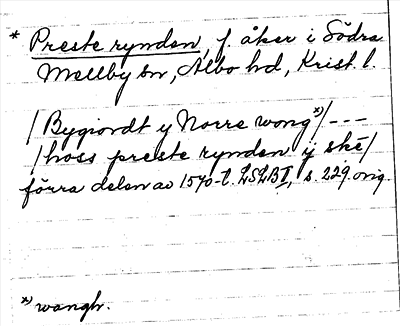 * Preste rynden, f. åker i Södra
Mellby sn, Albo hd, Krist. l.
/Bygiondt y Norre wong *)/ ---
/hoss preste rynden ij ské/
förra delen av 1570-t. LSLB II, s. 229. orig.
*) wangh.